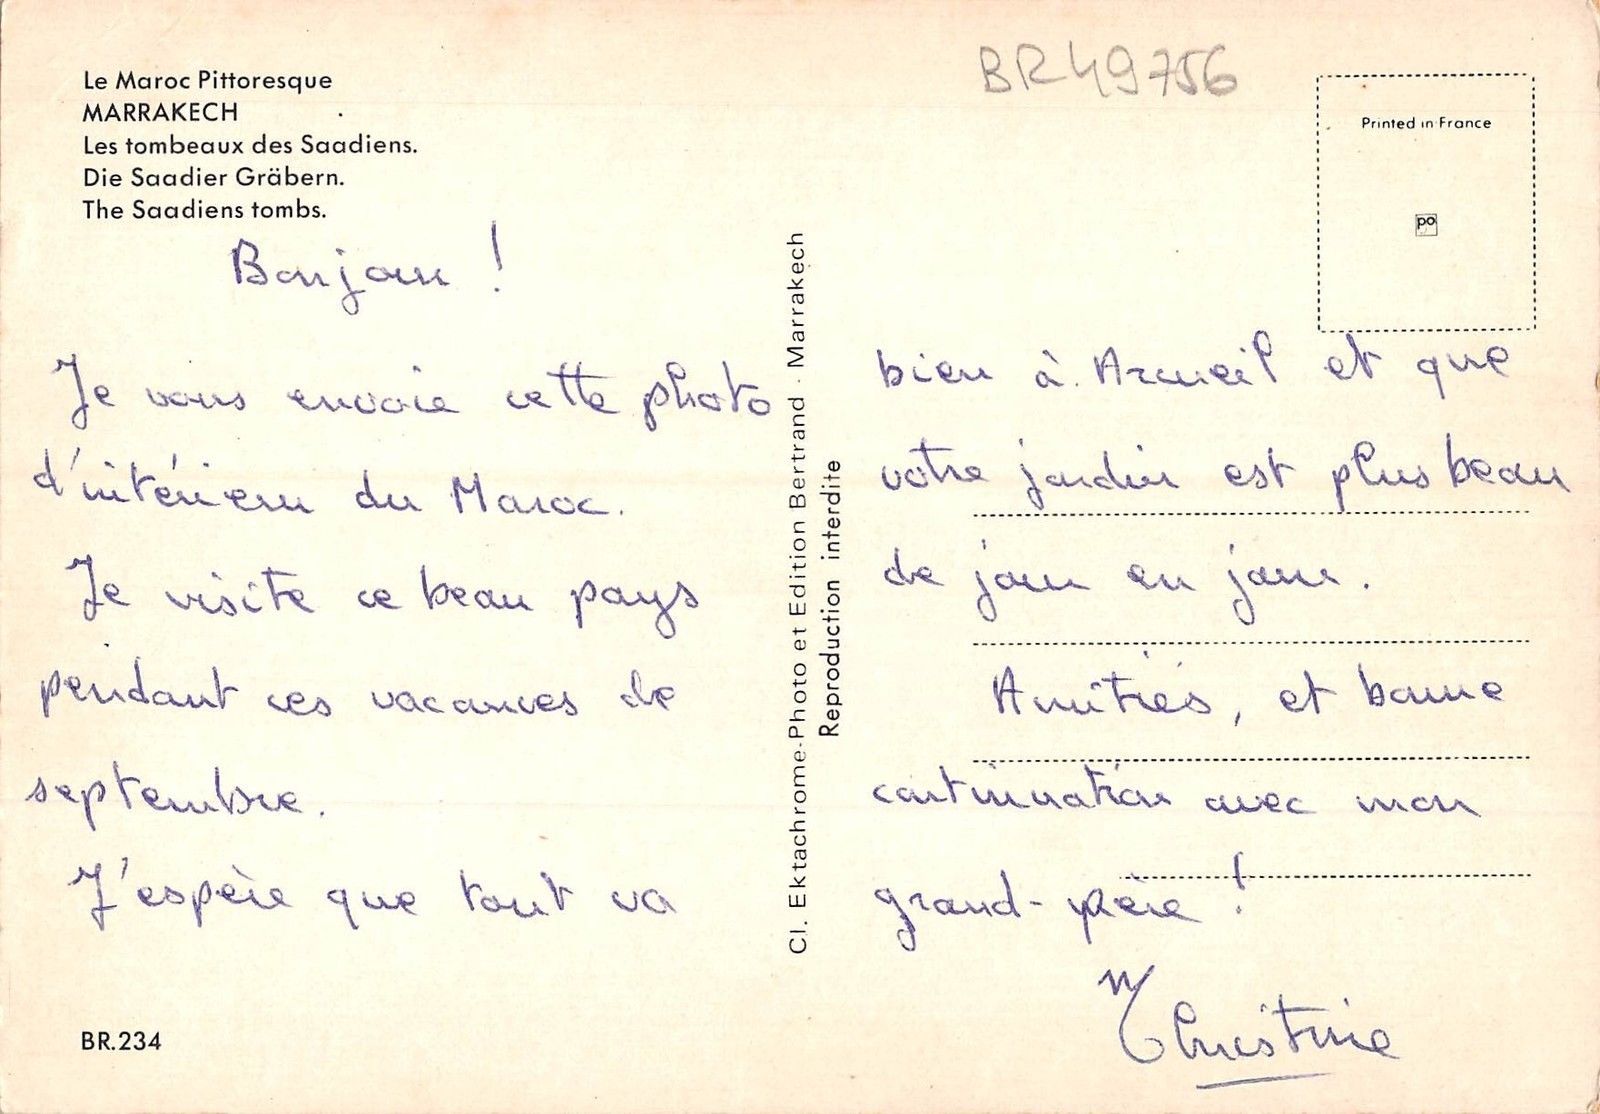 Le Maroc Pittoresque
MARRAKECH
Les tombeaux des Saadiens.
Die Saadier Gräbern.
The Saadiens tombs.
Bonjour !
Je vous envoie cette photo
d'intérieur du Maroc.
Je visite ce beau pays
pendant ces vacances de
septembre.
J'espère que tout va
BR.234
Cl. Ektachrome-Photo et Edition Bertrand - Marrakech
Reproduction interdite
BR49756
Printed in France
po
bien à Arcueil et que
votre jardin est plus beau
de jour en jour.
Amitiés, et bonne
continuation avec mon
grand-père !
Christine